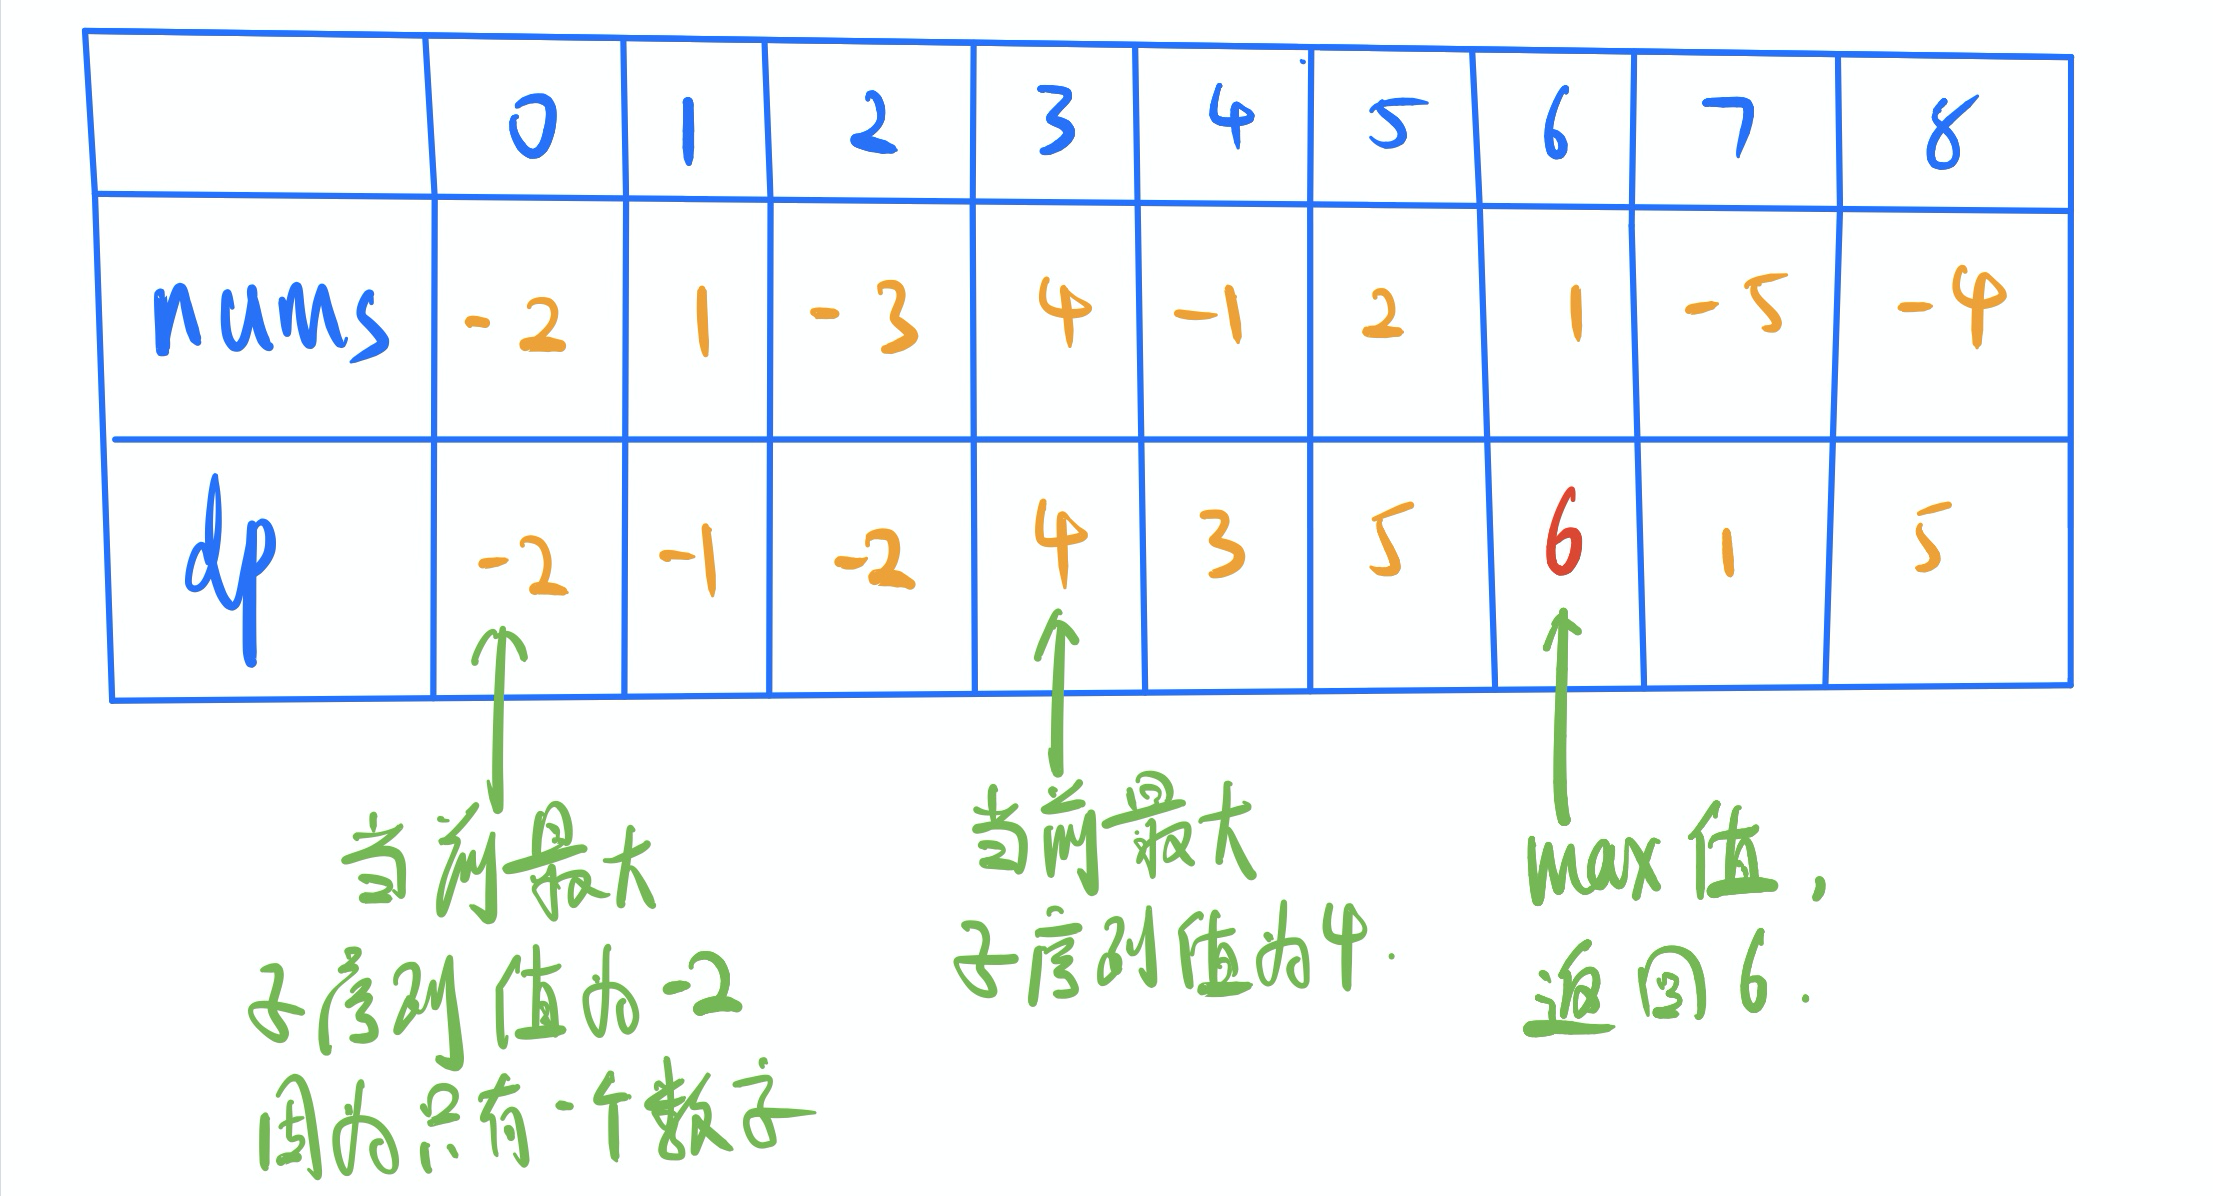 0 1 2 3 4 5 6 7 8
nums -2 1 -3 4 -1 2 1 -5 -4
dp -2 -1 -2 4 3 5 6 1 5
当前最大
子序列值为-2
因为只有一个数子
当前最大
子序列值为4.
max值,
返回6.